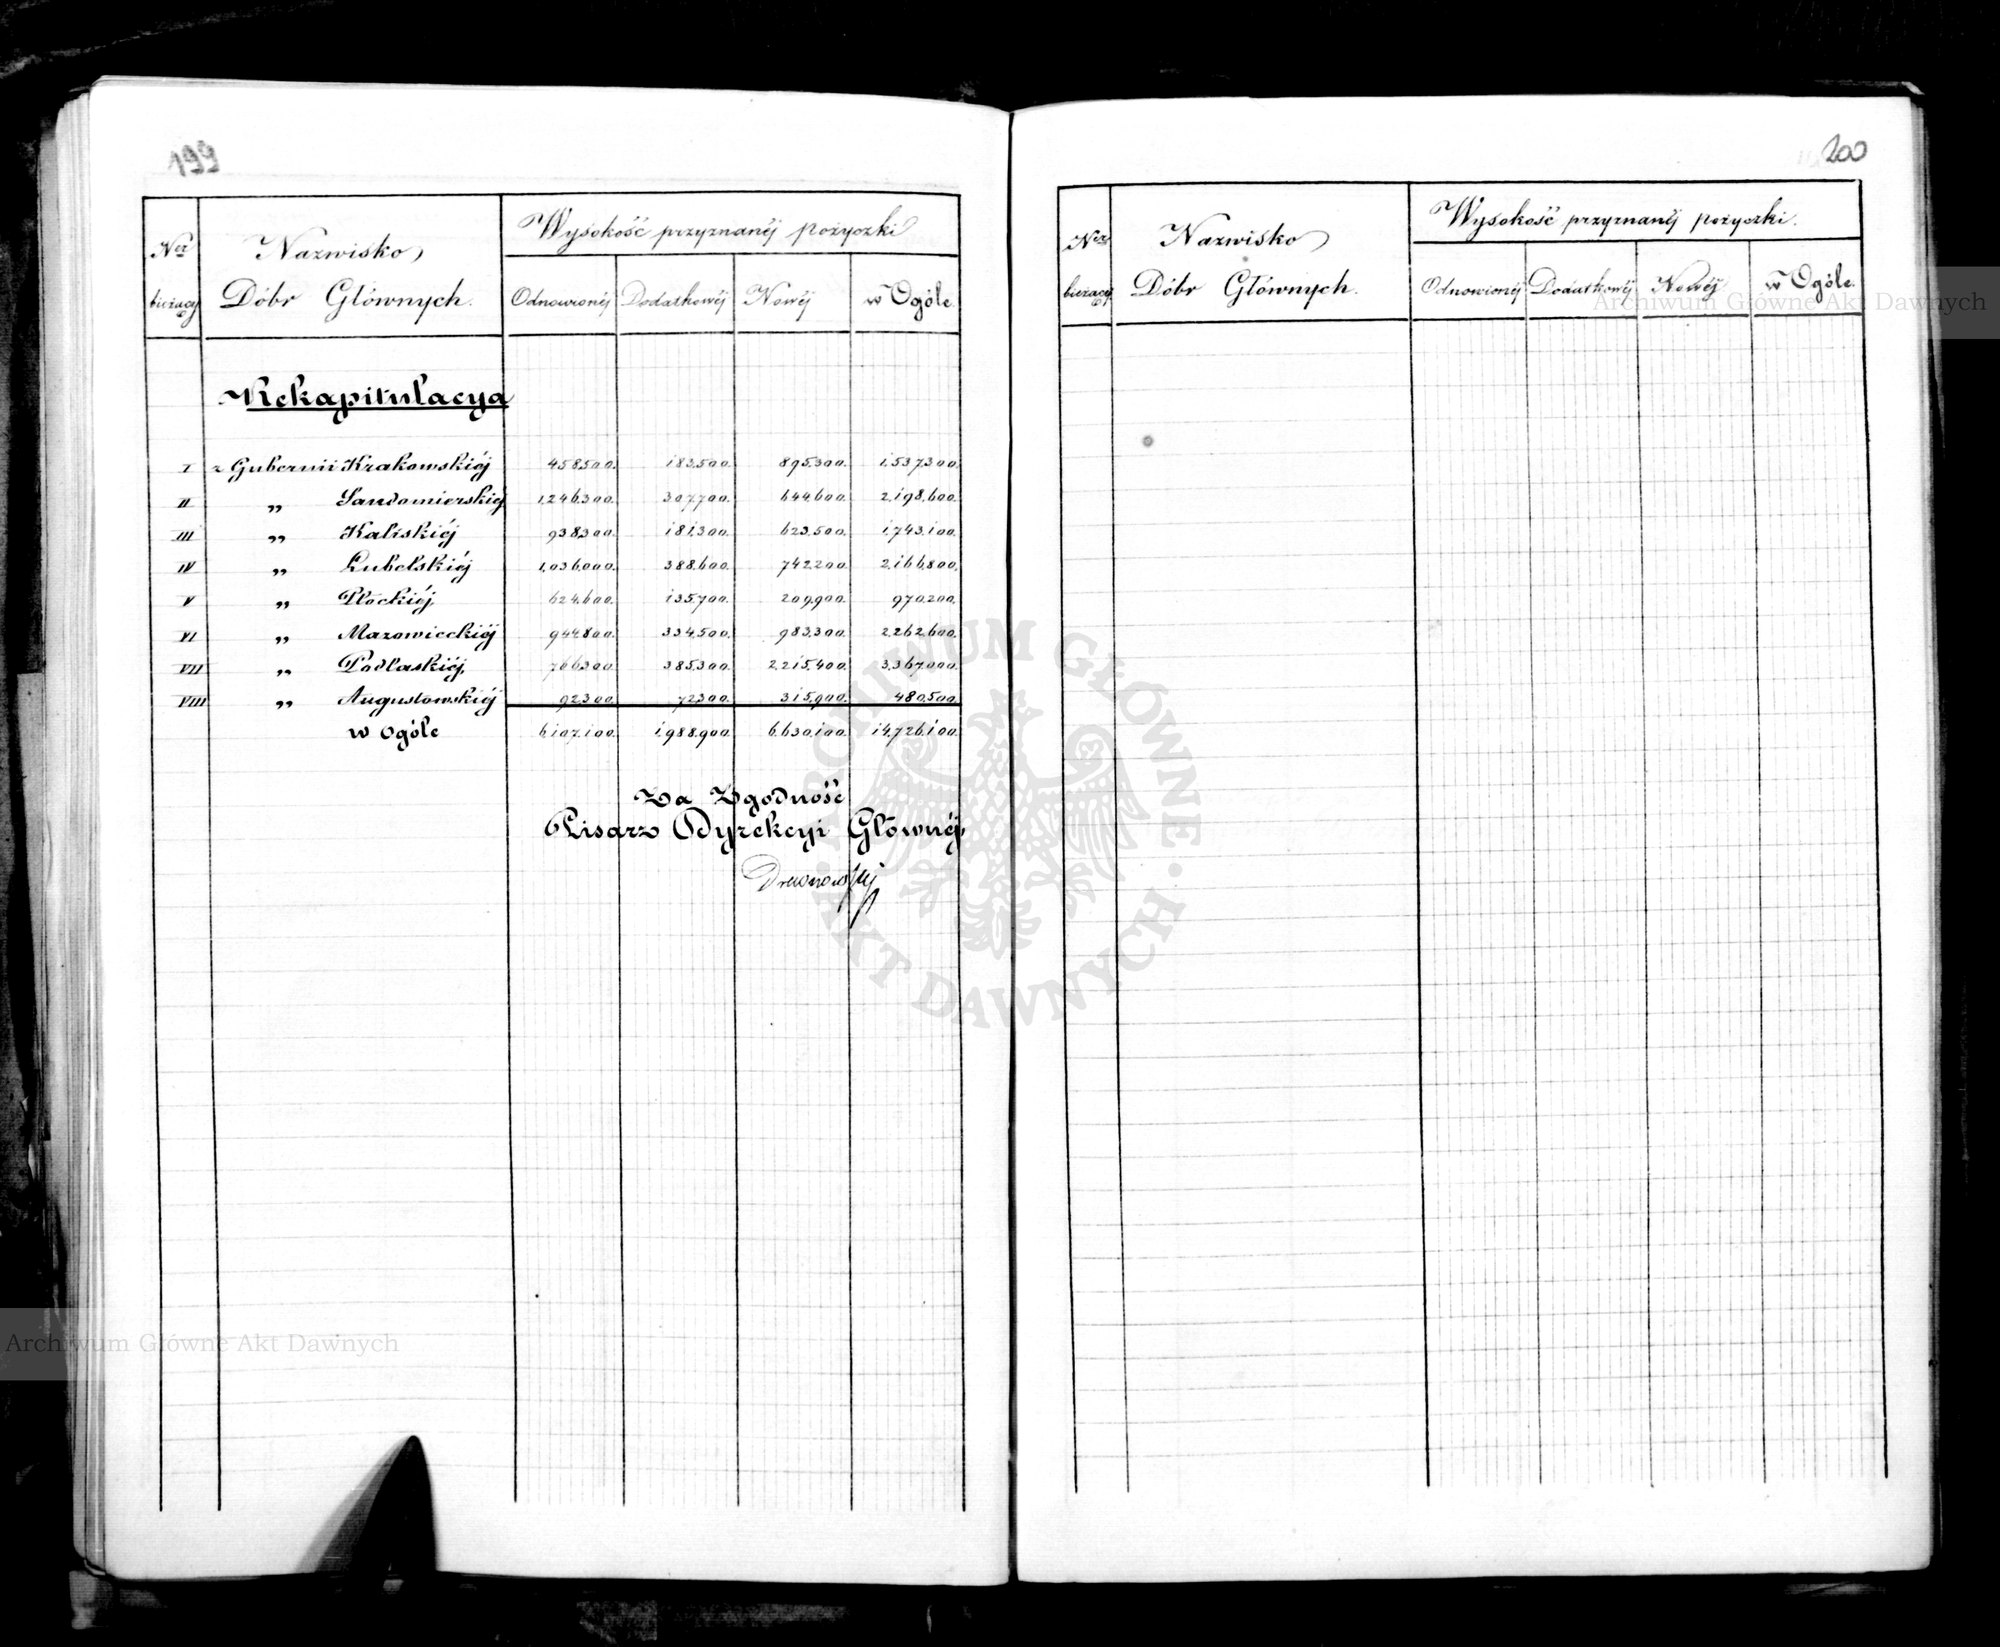 199
Nr bieżący
Nazwisko
Dóbr Głównych.
Wysokość przyznanéj pożyczki
Odnowionéj Dodatkowéj Nowéj w Ogóle
Rekapitulacya
I z Gubernii Krakowskiéj 458,500. 183,500. 895,300. 1,537,300.
II „ Sandomierskiéj 1,246,300. 307,700. 644,600. 2,198,600.
III „ Kaliskiéj 938,300. 181,300. 623,500. 1,743,100.
IV „ Lubelskiéj 1,036,000. 388,600. 742,200. 2,166,800.
V „ Płockiéj, 624,600. 135,700. 209,900. 970,200.
VI „ Mazowieckiéj 944,800. 334,500. 983,300. 2,262,600.
VII „ Podlaskiéj, 766,300. 385,300. 2,215,400. 3,367,000.
VIII „ Augustowskiéj 92,300. 72,300. 315,900. 480,500.
w Ogóle 6,107,100. 1,988,900. 6,630,100. 14,726,100.
Za Zgodność
Pisarz Dyrekcyi Głównéj,
Drewnowski
200
Nr bieżący
Nazwisko
Dóbr Głównych.
Wysokość przyznanéj pożyczki.
Odnowionéj Dodatkowéj Nowéj w Ogóle.
Archiwum Główne Akt Dawnych
ARCHIWUM GŁÓWNE · AKT DAWNYCH ·
Archiwum Główne Akt Dawnych